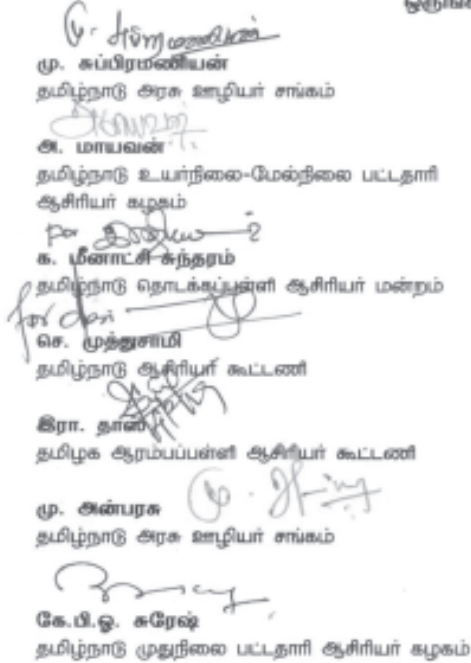 மு. சுப்பிரமணியன்
தமிழ்நாடு அரசு ஊழியர் சங்கம்
அ. மாயவன்
தமிழ்நாடு உயர்நிலை-மேல்நிலை பட்டதாரி
ஆசிரியர் கழகம்
for
க. மீனாட்சி சுந்தரம்
தமிழ்நாடு தொடக்கப்பள்ளி ஆசிரியர் மன்றம்
for
செ. முத்துசாமி
தமிழ்நாடு ஆசிரியர் கூட்டணி
இரா. தாஸ்
தமிழக ஆரம்பப்பள்ளி ஆசிரியர் கூட்டணி
மு. அன்பரசு
தமிழ்நாடு அரசு ஊழியர் சங்கம்
கே.பி.ஓ. சுரேஷ்
தமிழ்நாடு முதுநிலை பட்டதாரி ஆசிரியர் கழகம்